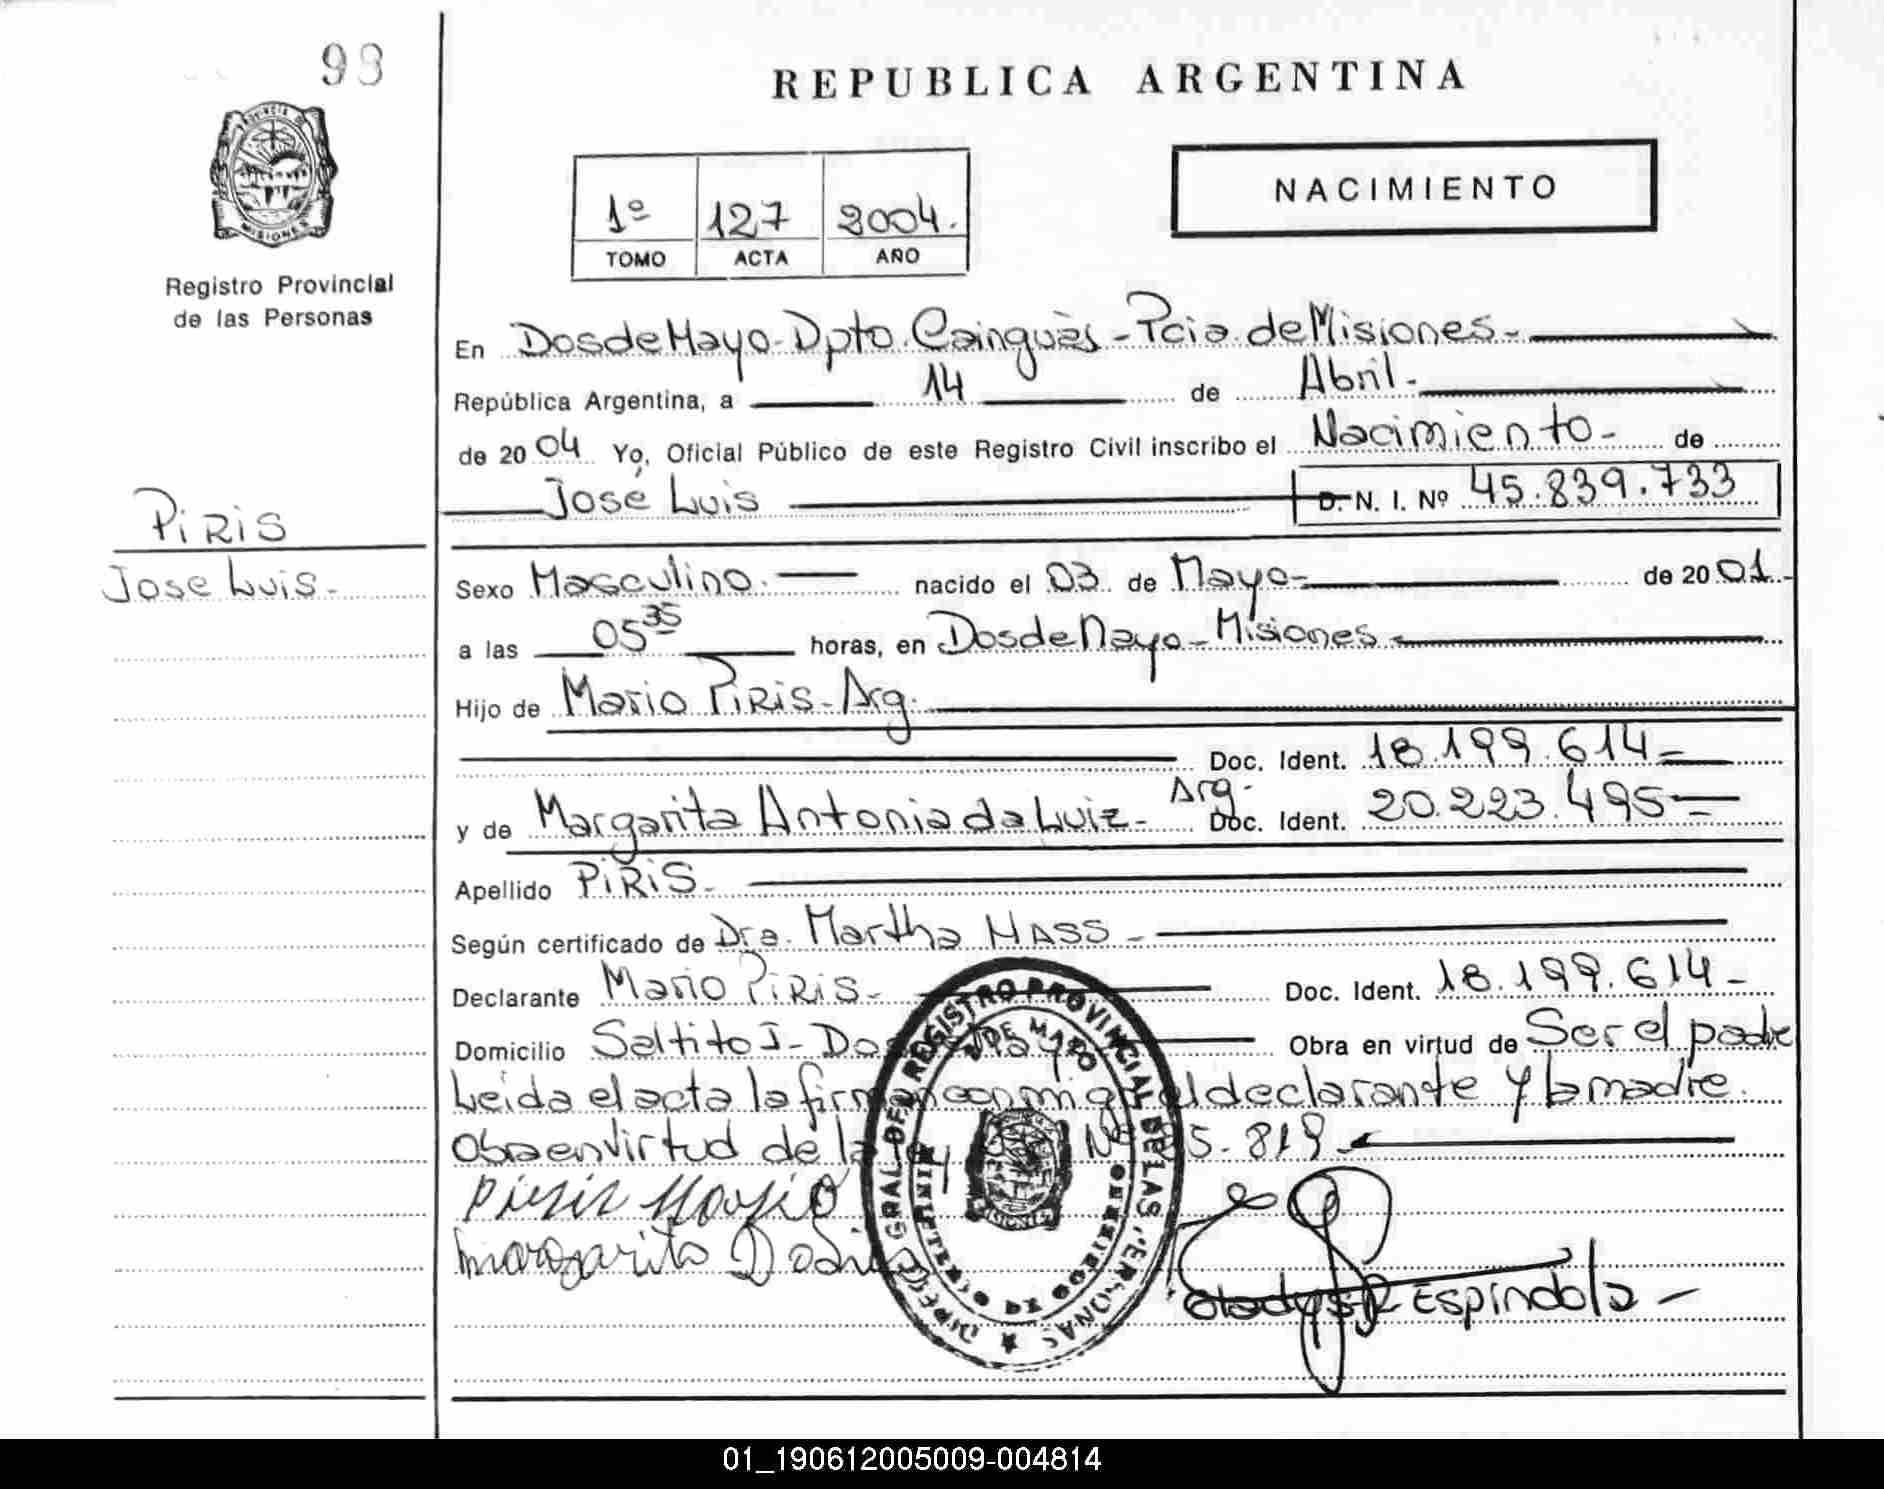 98
REPUBLICA ARGENTINA
PROVINCIA DE
MISIONES
Registro Provincial
de las Personas
1º 127 2004.
TOMO ACTA AÑO
NACIMIENTO
En Dos de Mayo - Dpto. Cainguàs - Pcia. de Misiones -
República Argentina, a 14 de Abril -
de 2004 Yo, Oficial Público de este Registro Civil inscribo el Nacimiento - de
José Luis D. N. I. Nº 45.839.733
PIRIS
Jose Luis -
Sexo Masculino. nacido el 03 de Mayo - de 2001.-
a las 05 35 horas, en Dos de Mayo - Misiones -
Hijo de Mario PIRIS - Arg.
Doc. Ident. 18.199.614 =
y de Margarita Antonia da Luiz - Arg. Doc. Ident. 20.223.495 =
Apellido PIRIS -
Según certificado de Dra. Martha HASS -
Declarante Mario PIRIS - Doc. Ident. 18.199.614 -
Domicilio Saltito I - Dos Mayo Obra en virtud de Ser el padre
Leida el acta la firman conmigo el declarante y la madre.
Obra en virtud de la ley Nº 25.819 -
Piris Mario
Margarita
Gladys R Espíndola -
DIREC. GRAL. DEL REGISTRO PROVINCIAL DE LAS PERSONAS
2 DE MAYO
MINISTERIO DE GOBIERNO
01_190612005009-004814